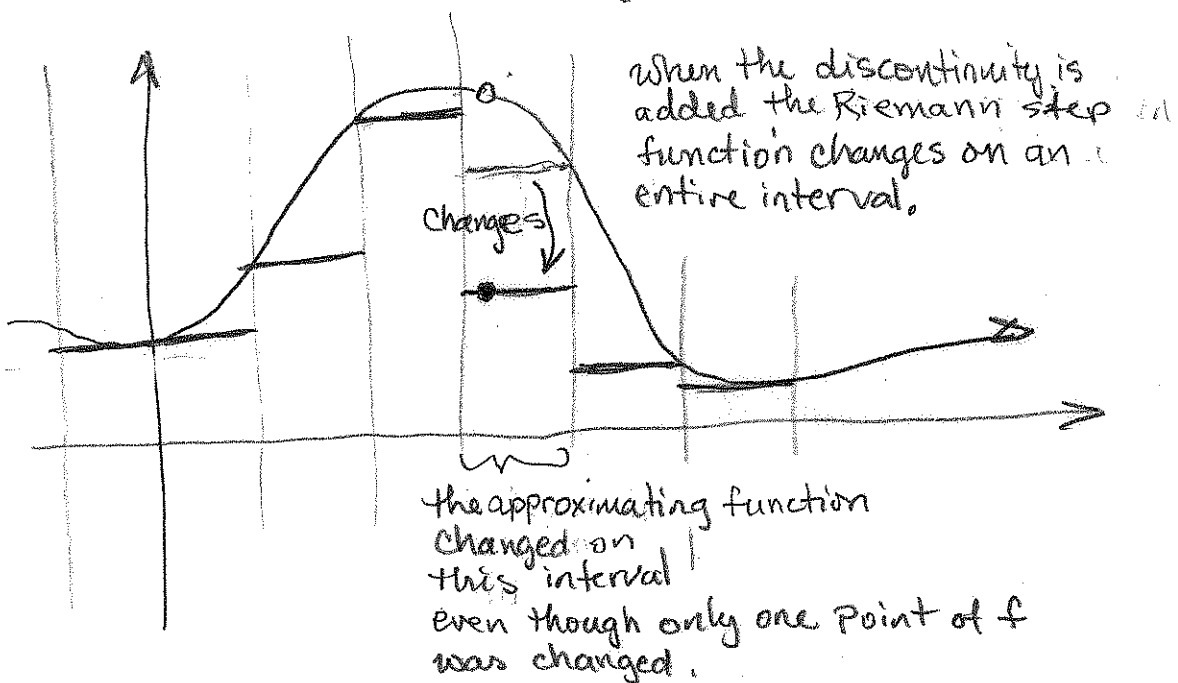 when the discontinuity is
added the Riemann step
function changes on an
entire interval.
Changes
the approximating function
changed on
this interval
even though only one point of f
was changed.